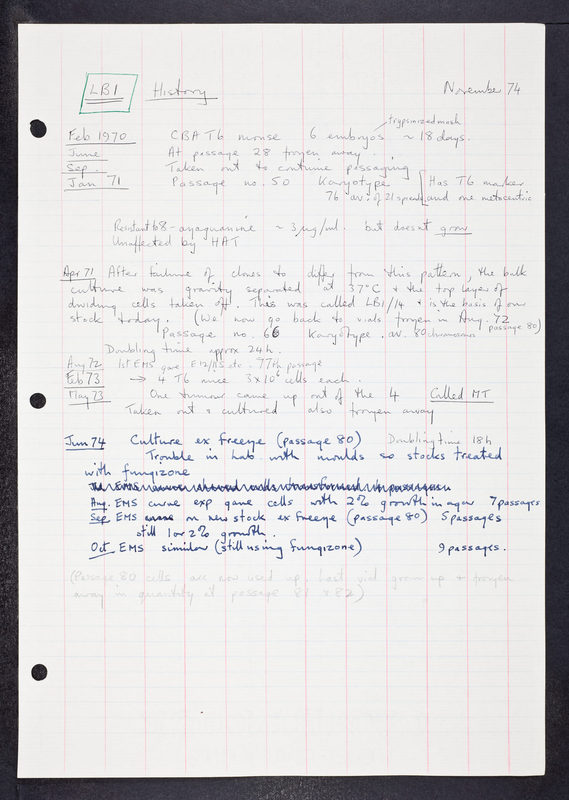 LB1 History November 74
trypsinized mash
Feb 1970 CBA T6 mouse 6 embryos ~ 18 days.
June At passage 28 frozen away.
Sep. Taken out to continue passaging
Jan 71 Passage no. 50 Karyotype Has T6 marker
76 av. of 21 spreads and one metacentric
Resistant to 8-azaguanine ~ 3 µg/ml. but doesn't grow
Unaffected by HAT
Apr 71 After failure of clones to differ from this pattern, the bulk
culture was gravity separated at 37°C & the top layer of
dividing cells taken off. This was called LB1/14 & is the basis of our
stock today. (We now go back to vials frozen in Aug. 72
passage 80)
Passage no. 66 Karyotype. av. 80 chromosomes
Doubling time approx 24h.
Aug 72 1st EMS gave etc. 77th passage
Feb 73 → 4 T6 mice 3 x 10⁶ cells each.
May 73 One tumour came up out of the 4 Called MT
Taken out & cultured also frozen away
Jun 74 Culture ex Freeze (passage 80) Doubling time 18h
Trouble in Lab with moulds so stocks treated
with fungizone
Aug. EMS curve exp gave cells with 2% growth in agar 7 passages
Sep EMS on new stock ex Freeze (passage 80) 5 passages
still 1 or 2% growth.
Oct EMS similar (still using Fungizone) 9 passages.
(Passage 80 cells are now used up. Last vial grown up & frozen
away in quantity at passage 81 & 82)